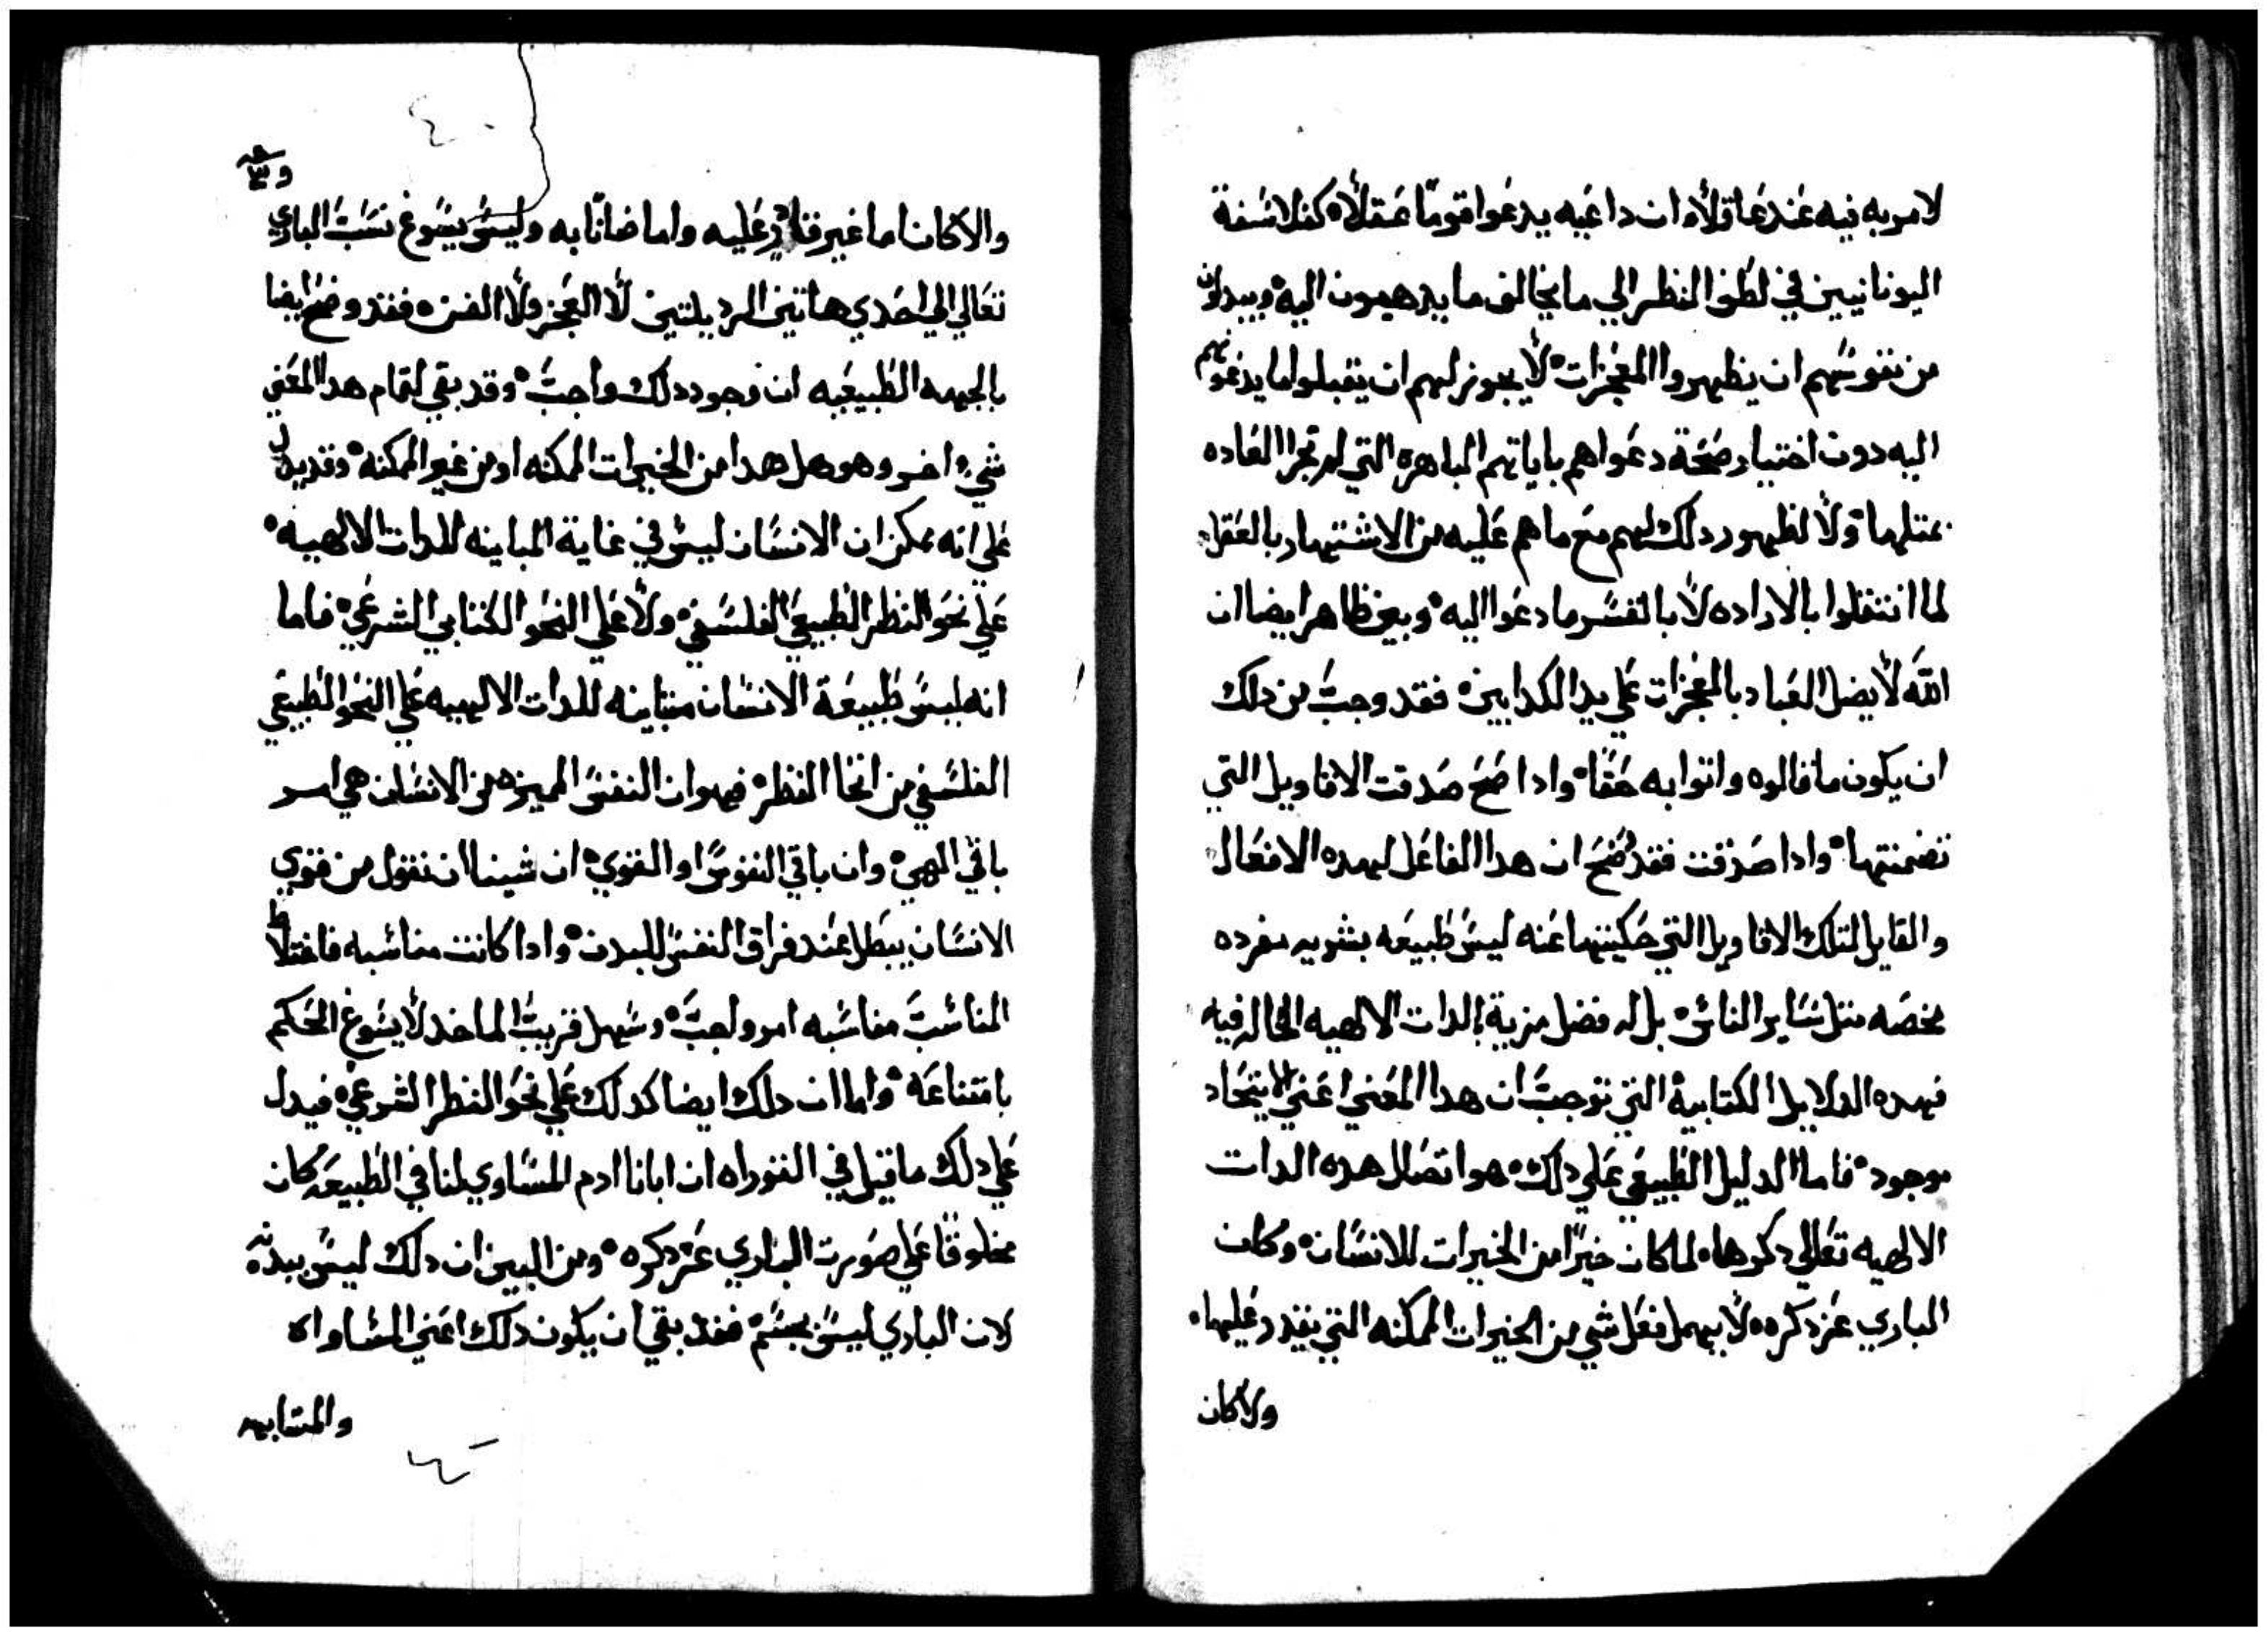 لامريه فيه عند عاقلاه ان داعيه يدعوا قوما عقلاه كفلاسفة
اليونانيين في لطف النظر الي ما يخالف ما يدهبون اليه ويبدلون
من نفوسهم ان يظهروا المعجزات لا يجوز لهم ان يقبلوا ما يدعونهم
اليه دون اختيار صحة دعواهم باياتهم الباهره التي لم تجر العاده
بمثلها ولا لظهور دلك لهم مع ما هم عليه من الاشتهار بالعقل
لما انتقلوا بالاراده لا بالقسر ما دعوا اليه وبين ظاهر ايضا ان
الله لا يضل العباد بالمعجزات علي يد الكدابين فقد وجب من دلك
ان يكون ما قالوه واتوا به حقا وادا صح صدقت الاقاويل التي
تضمنتها وادا صدقت فقد وضح ان هدا الفاعل لهده الافعال
والقايل لتلك الاقاويل التي حكيتها عنه ليس طبيعه بشريه مفرده
محضه مثل ساير الناس بل له فضل مزية بالدات الالهيه الحاله فيه
فهده الدلايل الكتابية التي توجب ان هدا المعني اعني الاتحاد
موجود فاما الدليل الطبيعي علي دلك هو اتصال هده الدات
الالهيه تعالي دكرها لما كان خيرا من الخيرات للانسان وكان
الباري عز دكره لا يهمل فعل شي من الخيرات الممكنه التي يقدر عليها
والا كان
والا كان اما غير قادر عليه واما ضانا به وليس يسوغ نسب الباري
تعالي الي احدي هاتين الرديلتين لا العجز ولا الضن فقد وضح ايضا
بالجهه الطبيعيه ان وجود دلك واجب وقد بقي لتمام هدا المعني
شي اخر وهو هل هدا من الخيرات الممكنه او من غير الممكنه وقد يدل
علي انه ممكن ان الانسان ليس في غاية المباينه للدات الالهيه
علي نحو النظر الطبيعي الفلسفي ولا علي النحو الكتابي الشرعي فاما
انه ليس طبيعة الانسان متباينه للدات الالهيه علي النحو الطبيعي
الفلسفي من انحا النظر فهو ان النفس المميزه من الانسان هي امر
باقي الهي وان باقي النفوس او القوي ان شينا ان نقول من قوي
الانسان يبطل عند فراق النفس للبدن وادا كانت مناسبه فاختلاط
المناسب مناسبه امر واجب وسهل قريب الماخد لا يسوغ الحكم
بامتناعه واما ان دلك ايضا كدلك علي نحو النظر الشرعي فيدل
علي دلك ما قيل في التوراه ان ابانا ادم المساوي لنا في الطبيعه كان
مخلوقا علي صورت الباري عز دكره ومن البين ان دلك ليس ببدنه
لان الباري ليس بجسم فقد بقي ان يكون دلك اعني المساواه
والمشابهه